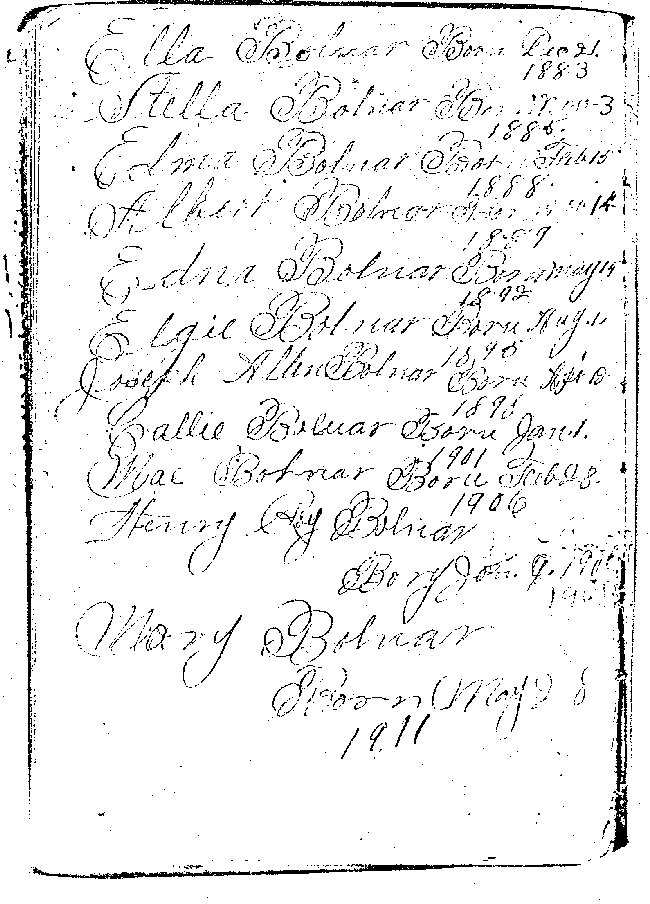 Ella Bolnar Born Dec 21.
1883
Stella Bolnar 3
1885.
Edna Bolnar Born Feb 15
1888
Albert Bolnar 14
1889
Edna Bolnar Born may 14
1892
Elgie Bolnar Born Aug 1.
1895
Joseph Allen Bolnar Born
1898
Callie Bolnar Born Jan 1.
1901
Mae Bolnar Born Feb 28.
1906
Henry Roy Bolnar
Born Jan. 9.
Mary Bolnar
Born May 28
1911